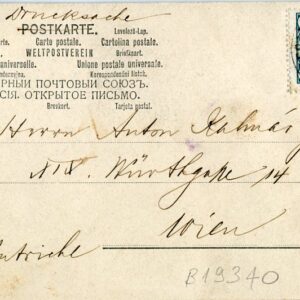 Drucksache
POSTKARTE.
Weltpost. Levelező-Lap.
Carte postale. Cartolina postale.
WELTPOSTVEREIN Briefkaart.
universelle. Unione postale universale.
Korespondenční lístek.
РНЫЙ ПОЧТОВЫЙ СОЮЗЪ.
СІЯ. ОТКРЫТОЕ ПИСЬМО.
Brevkort. Tarjeta postal.
Herrn Anton Kalmár
XIX. Würthgasse 14
Wien
B19340